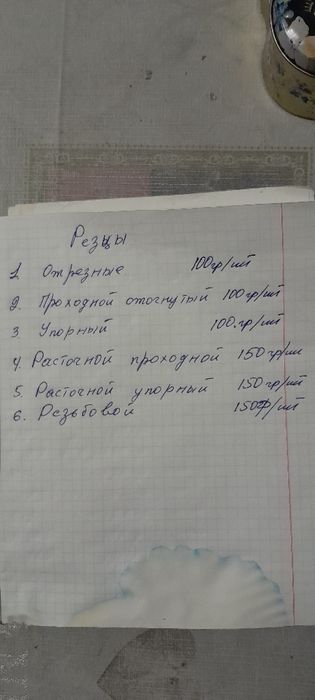 Резцы
1 Отрезные 100гр/шт
2. Проходной отогнутый 100гр/шт
3. Упорный 100.гр/шт
4. Расточной проходной 150гр/шт
5. Расточной упорный 150гр/шт
6. Резьбовой 150гр/шт